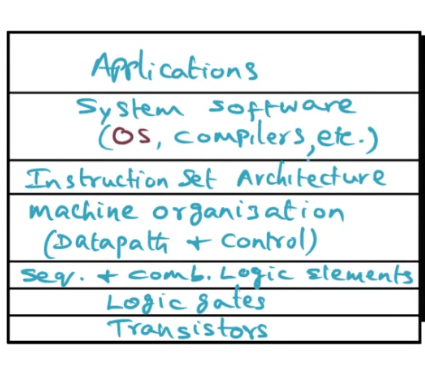 Applications
System software
(OS, compilers, etc.)
Instruction Set Architecture
machine organization
(Datapath + Control)
Seq. + comb. Logic elements
Logic gates
Transistors